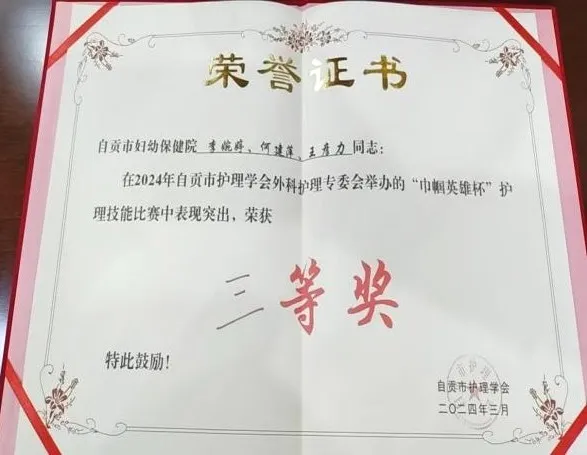 荣誉证书
自贡市妇幼保健院 李婉婷、何建萍、王彦力 同志：
在2024年自贡市护理学会外科护理专委会举办的“巾帼英雄杯”护
理技能比赛中表现突出，荣获
三等奖
特此鼓励！
自贡市护理学会
二〇二四年三月